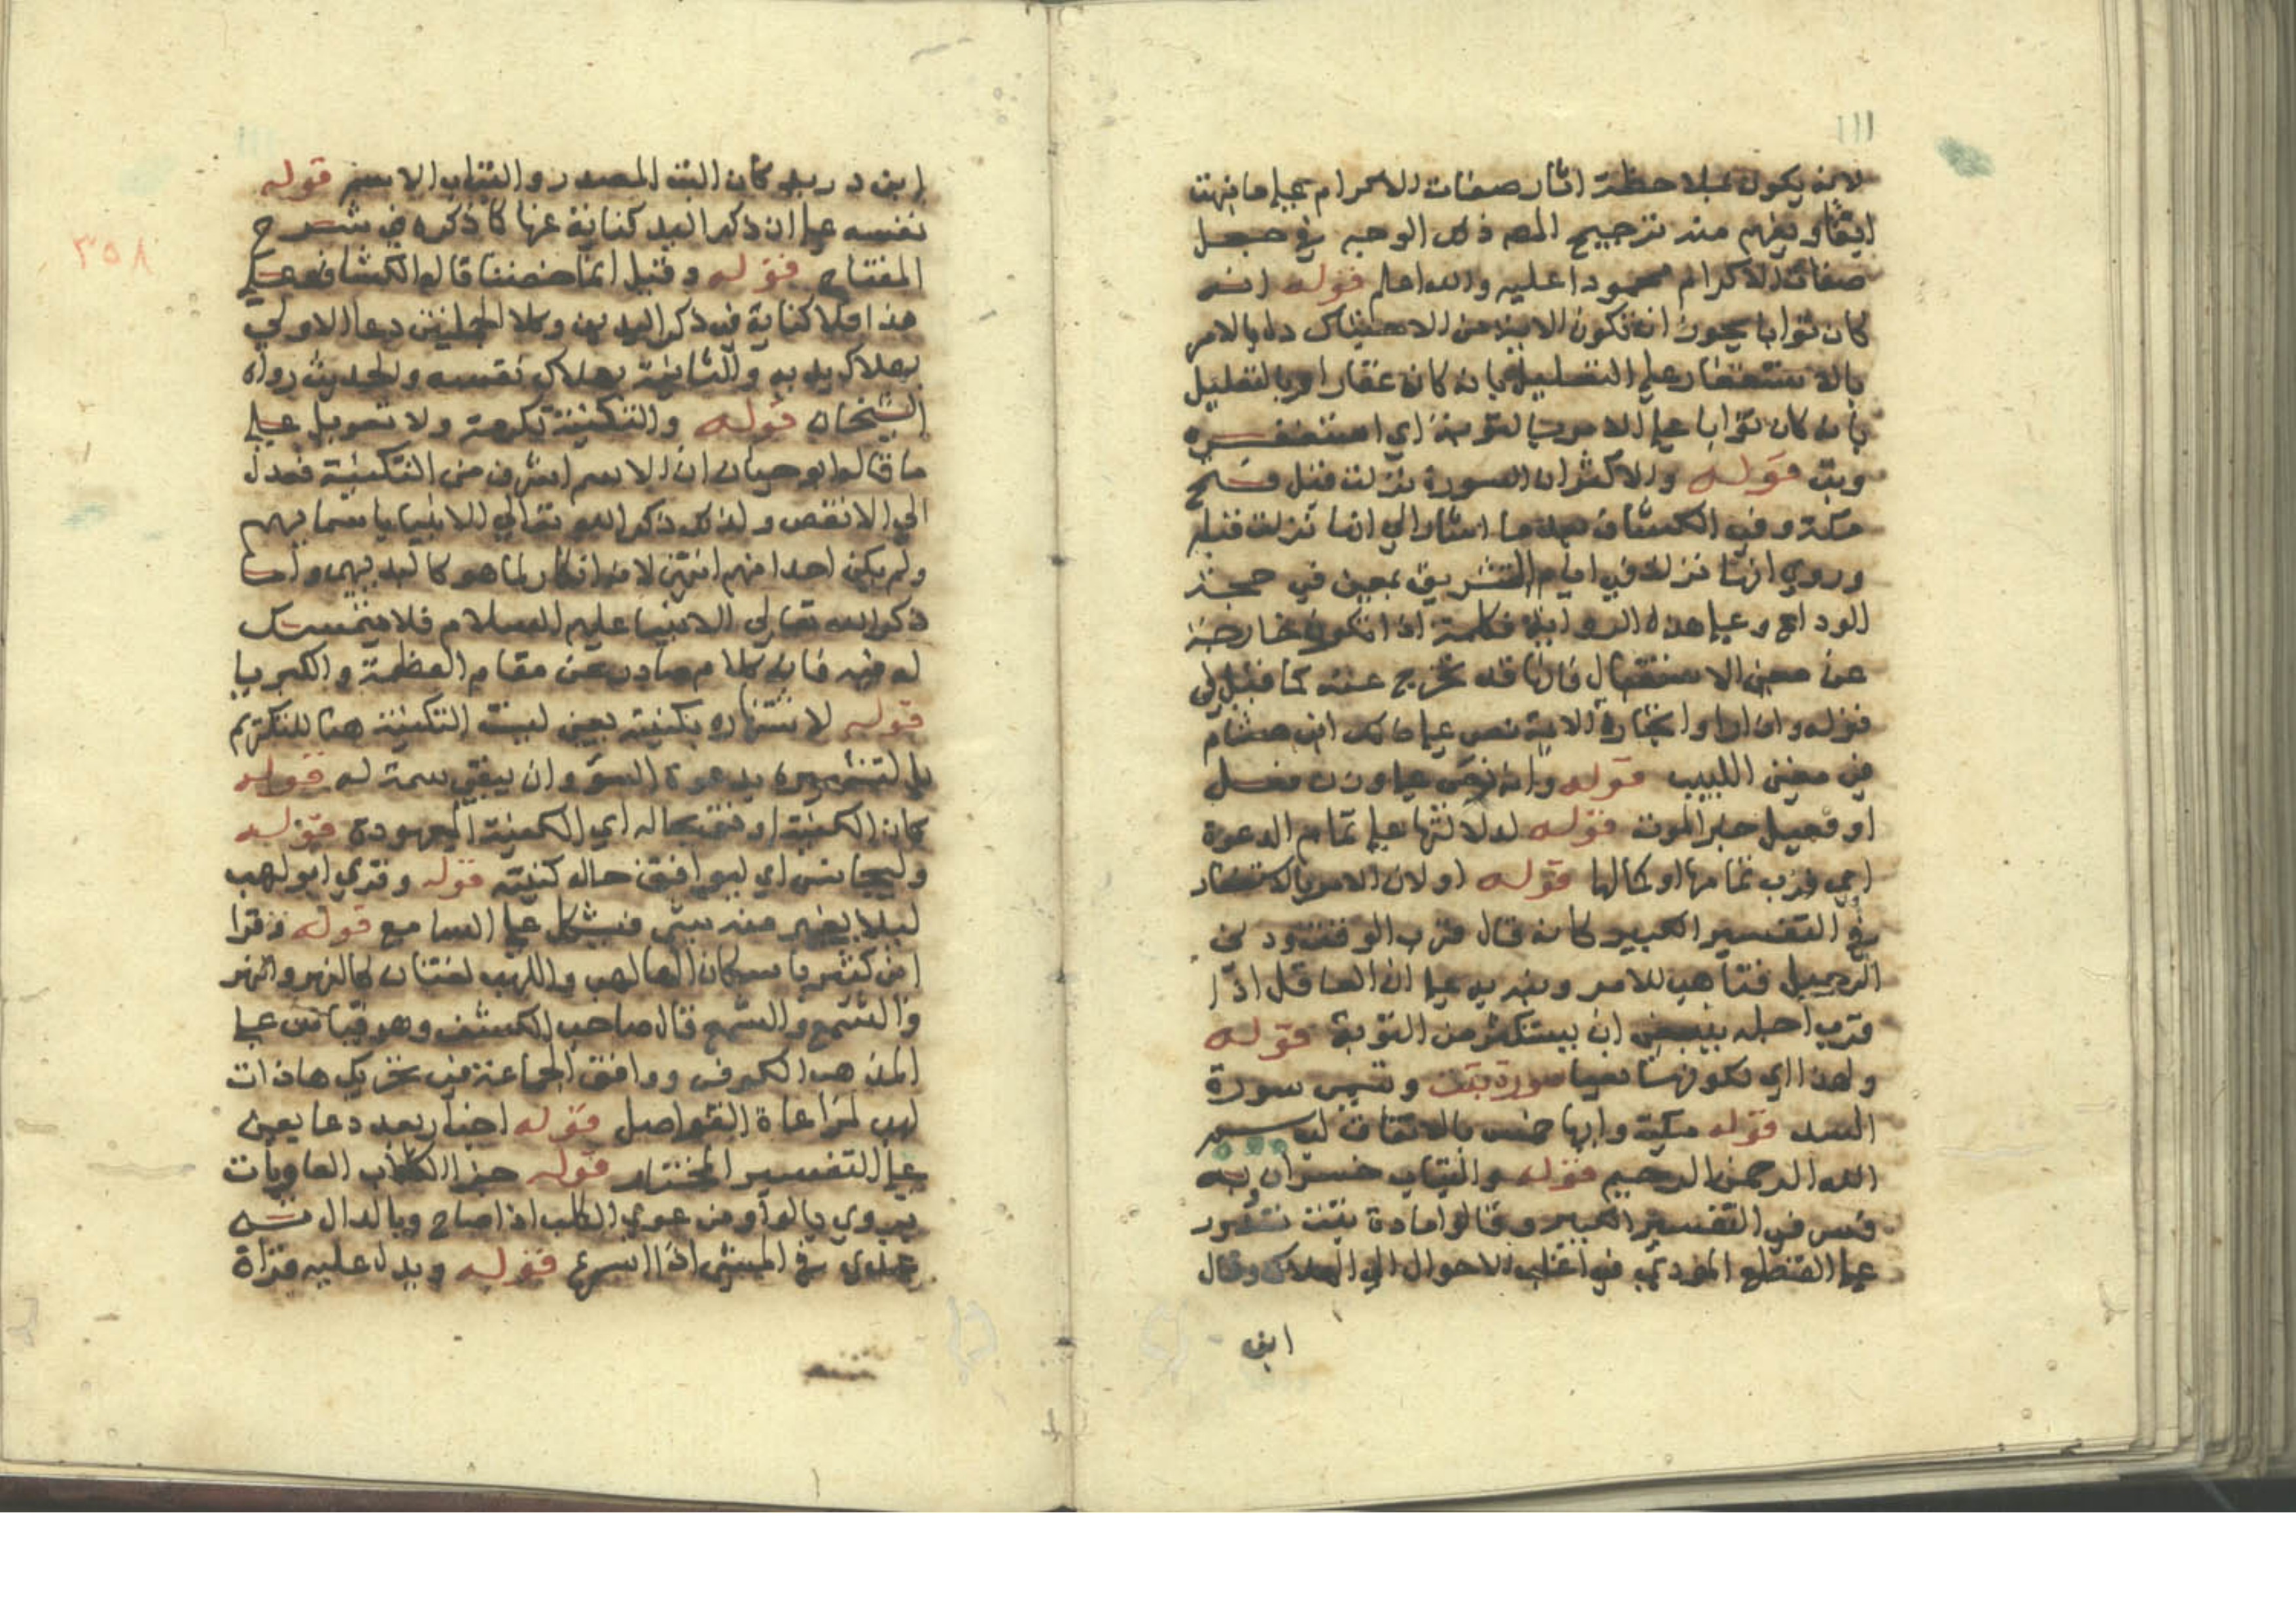 ١١١
لانه يكون بملاحظة اثار صفات الاكرام على ما فهمت
ويفهم منه ترجيح المصه ذلك الوجه في جعل
صفات الاكرام محمودا عليه والله اعلم قوله انه
كان توابا يجوز ان تكون الاية من الاحتباك دل بالامر
بالاستغفار على التعليل بانه كان غفارا وبالتعليل
بانه كان توابا على الامر بالتوبة اي استغفره
وتب قوله والاكثر ان السورة نزلت قبل فتح
مكة وفي الكشاف بعد ما اشار الي انها نزلت قبله
وروي انها نزلت في ايام التشريق بمني في حجة
الوداع وعلى هذه الرواية فكلمة اذا تكون خارجة
عن معني الاستقبال فانها قد تخرج عنه كما قيل في
قوله واذا راوا تجارة الاية نص على ذلك ابن هشام
في مغني اللبيب قوله وانه نعى على وزن فعل
او فعيل خبر الموت قوله لدلالتها على تمام الدعوة
اي قرب تمامها وكمالها قوله او لان الامر بالاستغفار
في التفسير الكبير كانه قال قرب الوقت ودنى
الرحيل فتاهب للامر ونبه به على ان العاقل اذا
قرب اجله ينبغي ان يستكثر من التوبة قوله
ولهذا اي لكونها نعيا سورة تبت وتسمى سورة
المسد قوله مكية وايها خمس بالاتفاق لبسم
الله الرحمن الرحيم قوله والتباب خسران به
فسر في التفسير الكبير وقالوا مادة تبت تدور
على القطع المؤدي في اغلب الاحوال الي الهلاك وقال
ابن
٣٥٨
ابن دريد كأن التب المصدر والتباب الاسم قوله
نفسه على ان ذكر اليد كناية عنها كما ذكره في شرح
المفتاح قوله وقيل انما خصتا قاله الكشاف فعلى
هذا فلا كناية في ذكر اليدين وكلا الجملتين دعا الاولي
بهلاك يديه والثانية بهلاك نفسه والحديث رواه
الشيخان قوله والتكنية تكرمة ولا تعويل على
ما قاله ابو حيان ان الاسم اشرف من التكنية فعدل
الي الانقص ولذلك ذكر الله تعالي الانبيا باسمايهم
ولم يكن احدا منهم انتهى لانه انكار لما هو كالبديهي واما
ذكر الله تعالى الانبيا عليهم السلام فلا متمسك
له فيه فانه كلام صادر عن مقام العظمة والكبريا
قوله لاشتهاره بكنيته يعني ليست التكنية هنا للتكريم
بل لتشهيره بدعوة السؤ وان يبقي سمة له قوله
كان الكنية اوفق بحاله اي الكنية المعهودة قوله
وليجانس اي ليوافق حاله كنيته قوله وقري ابو لهب
ليلا يغير منه شي فيشكل على السامع قوله وقرا
ابن كثير باسكان الها لهب واللهب لغتان كالنهر والنهر
والشمع والشمع قال صاحب الكشف وهو قياس على
المذهب الكوفي ووافق الجماعة في تحريك ها ذات
لهب لمراعاة الفواصل قوله اخبار بعد دعا يعني
على التفسير المختار قوله جزا الكلاب العاويات
يروي بالواو من عوي الكلب اذا صاح وبالدال من
عدى في المشي اذا اسرع قوله ويدل عليه قراة